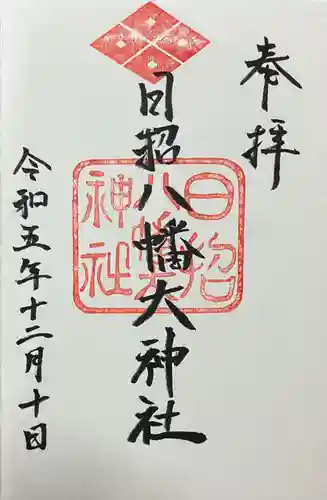 奉拝
日招八幡大神社
日招
八幡大
神社
令和五年十二月十日